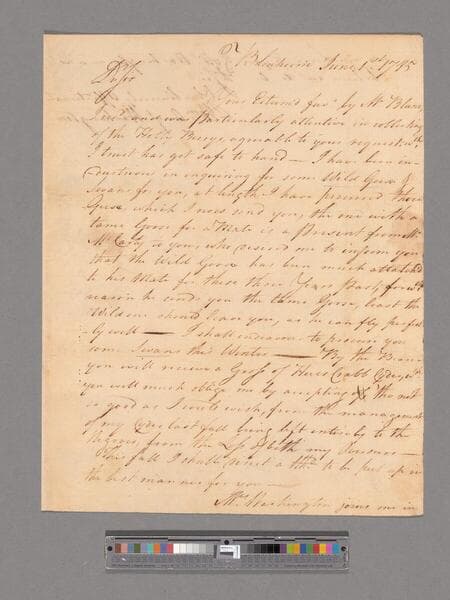 Blenheim June 1st 1795
Dr Sir
Your Esteem'd favr by Mr Blane,
I recd and was particularly attentive in collecting
of the Holly Berrys, agreeable to your request wch
I trust has got safe to hand — I have been in-
dustrious in inquiring for some Wild Geese &
Swans for you, at length I have procured three
Geese, which I now send you, the one with a
tame Goose for a Mate is a Present from Mr
McCarty to you, who desired me to inform you
that the Wild Goose has been much attached
to his Mate for these three Years Past, for wch
reason he send you the tame Goose, least the
Wild one should leave you, as he can fly perfect-
ly well — I shall endeavour to procure you
some Swans this Winter — By the Bearer
you will receive a Groce of Hews Crabb Cyder, wch
you will much oblige me by accepting of, tho not
so good as I could wish, from the management
of my Cyder last fall being left entirely to the
Negroes, from the my Overseer —
This fall I shall reserve a to be put up in
the best manner for you —
Mrs Washington joins me in